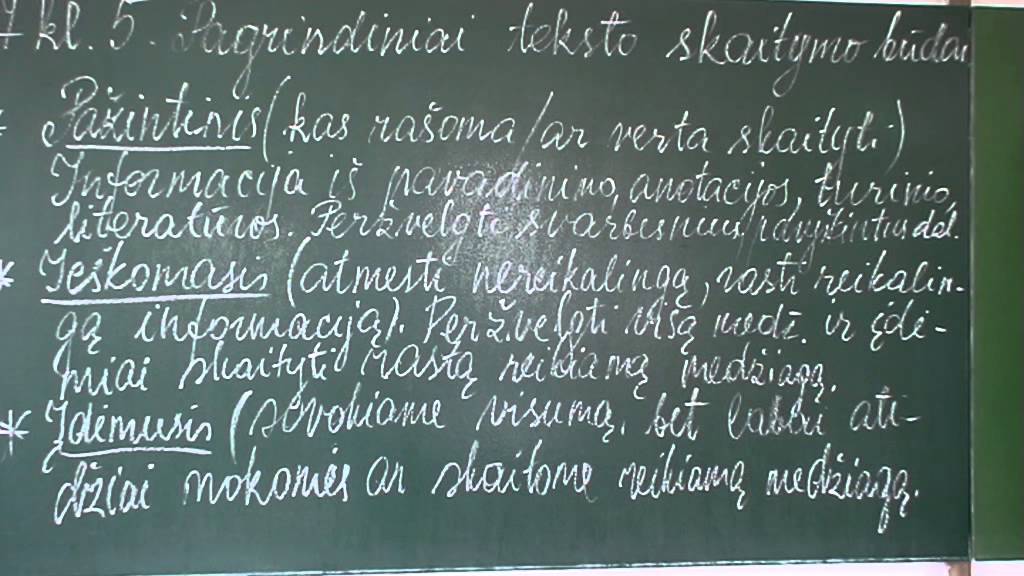 7 kl. 5. Pagrindiniai teksto skaitymo būdai
* Pažintinis (kas rašoma/ar verta skaityti)
Informacija iš pavadinimo, anotacijos, turinio,
literatūros. Peržvelgti svarbesnius/ dal.
* Ieškomasis (atmesti nereikalingą, rasti reikalin-
gą informaciją). Peržvelgti visą medž. ir įdė-
miai skaityti rastą reikiamą medžiagą.
* Įdėmusis (suvokiame visumą, bet labai ati-
džiai mokomės ar skaitome reikiamą medžiagą.